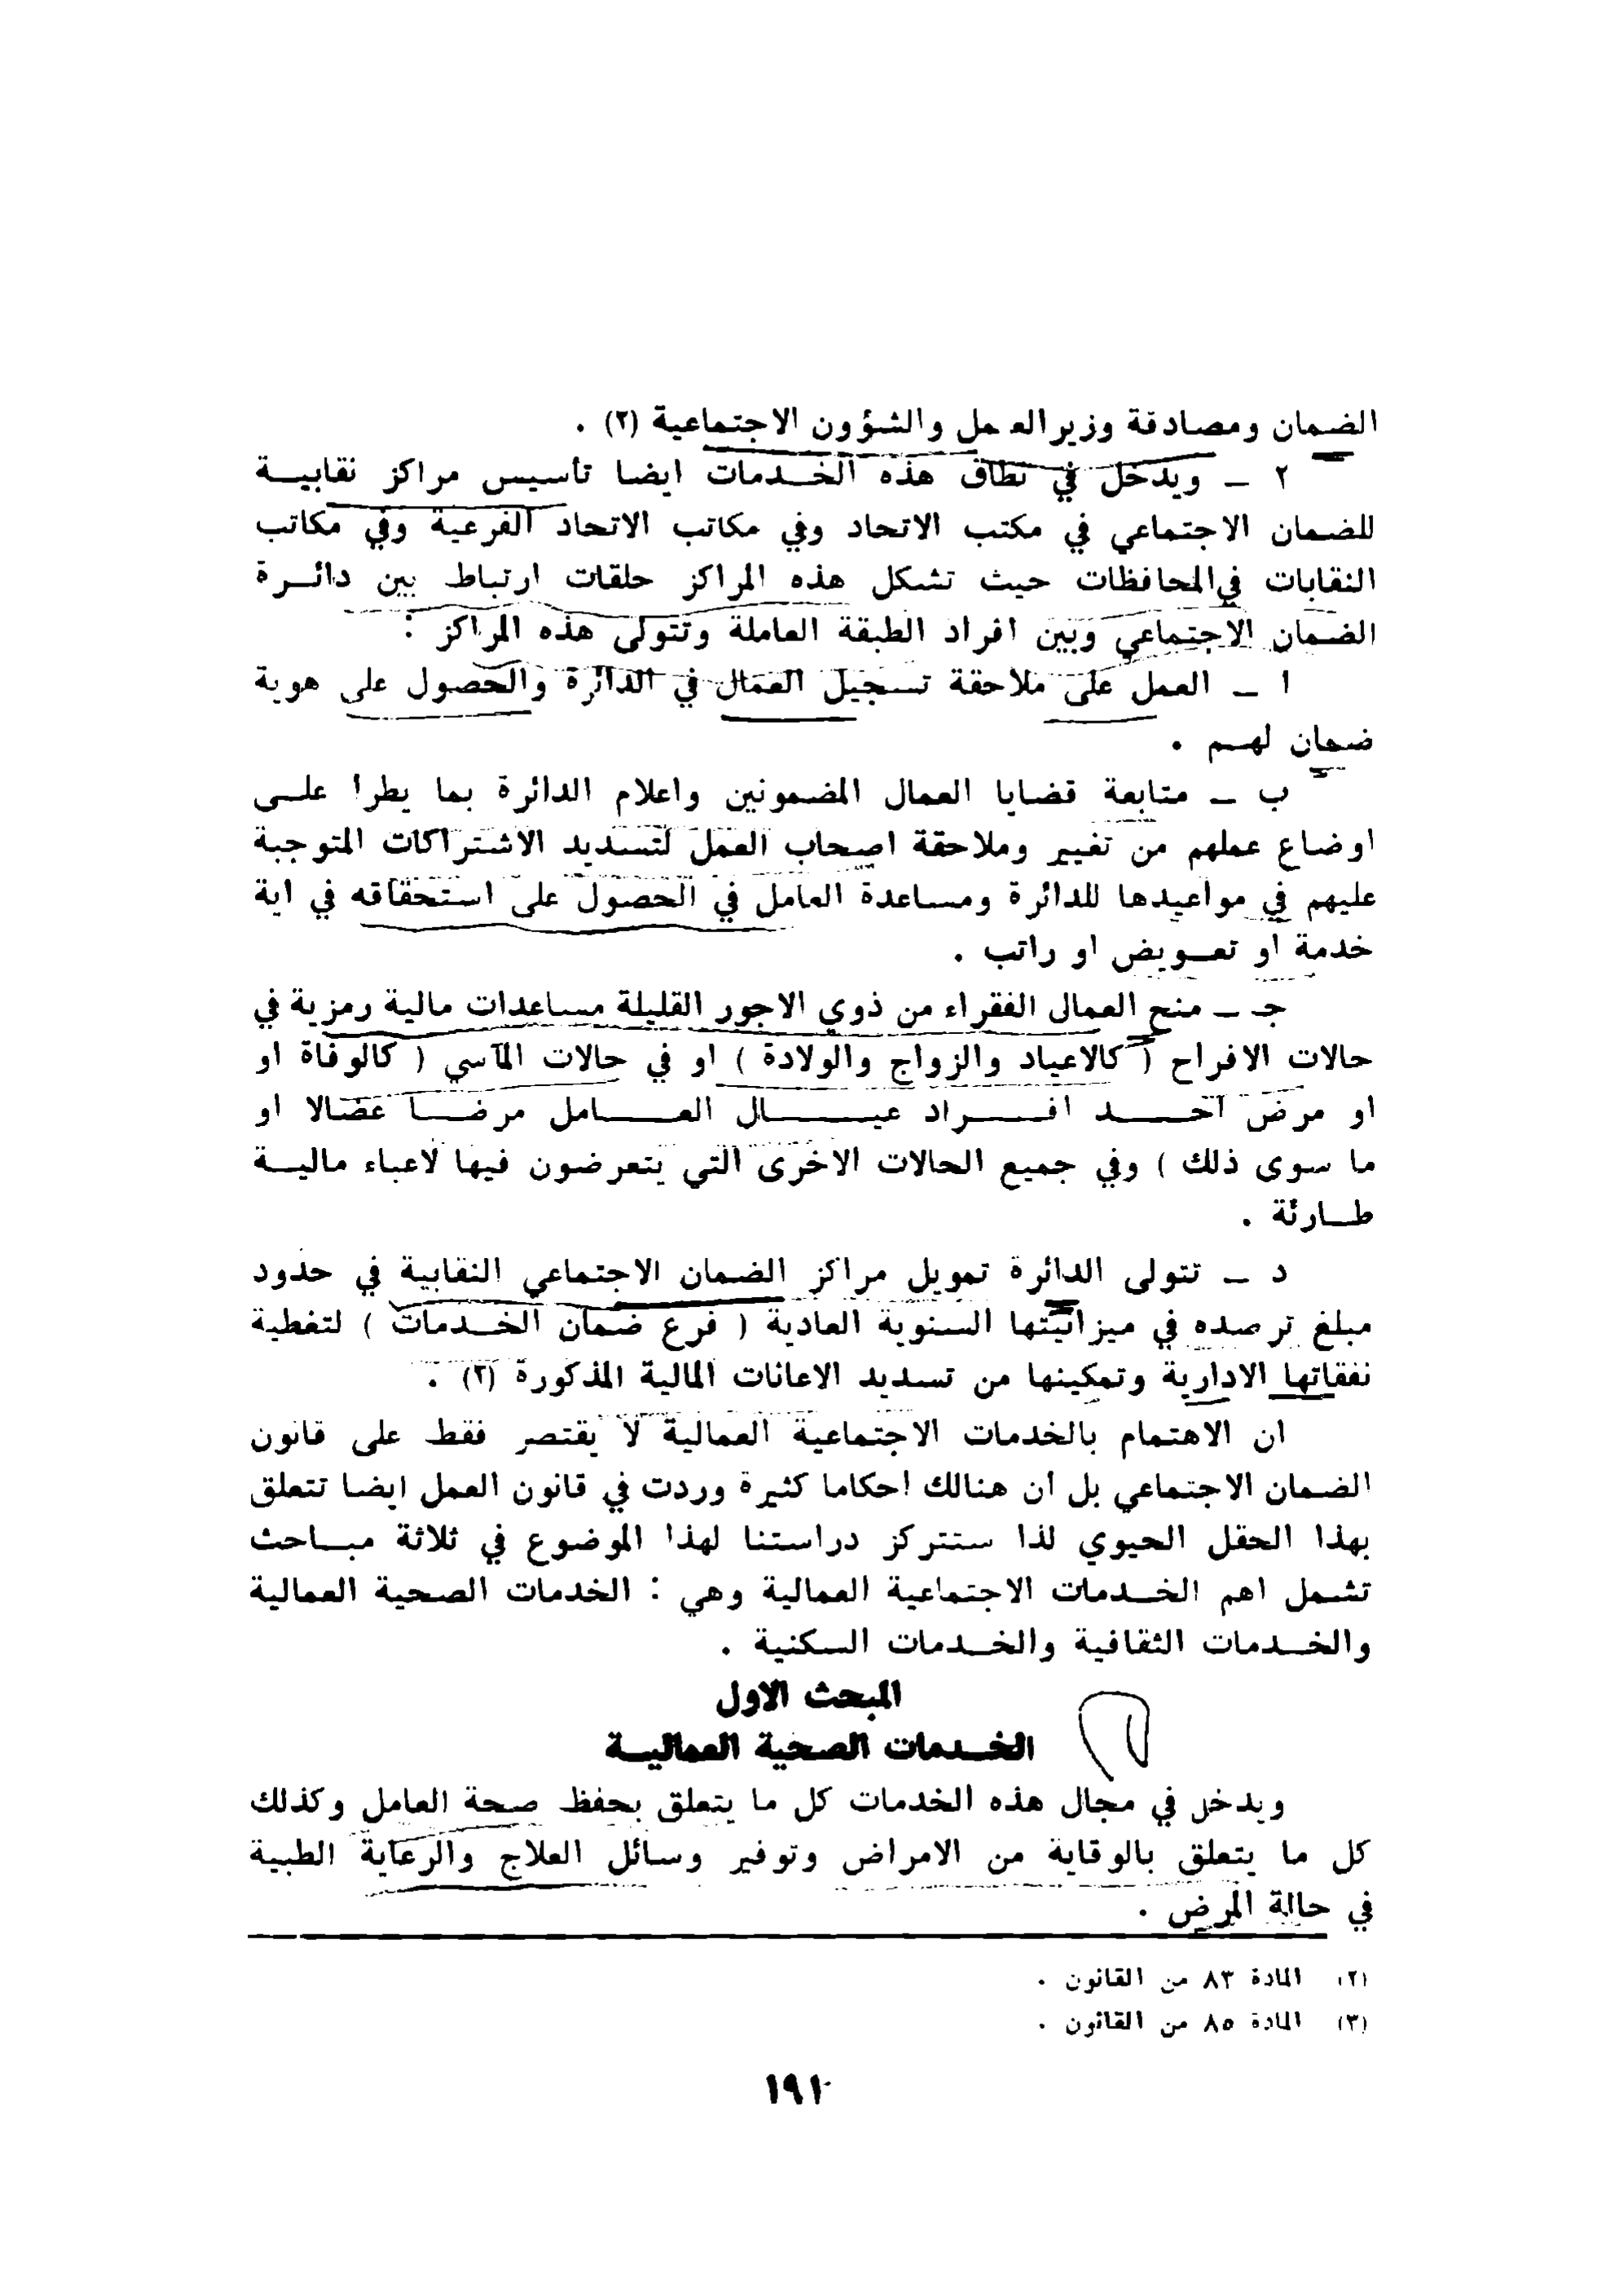 الضمان ومصادقة وزير العمل والشؤون الاجتماعية (٢) .
٢ ـ ويدخل في نطاق هذه الخدمات ايضا تأسيس مراكز نقابية
للضمان الاجتماعي في مكتب الاتحاد وفي مكاتب الاتحاد الفرعية وفي مكاتب
النقابات في المحافظات حيث تشكل هذه المراكز حلقات ارتباط بين دائرة
الضمان الاجتماعي وبين افراد الطبقة العاملة وتتولى هذه المراكز :
ا ـ العمل على ملاحقة تسجيل العمال في الدائرة والحصول على هوية
ضمان لهم .
ب ـ متابعة قضايا العمال المضمونين واعلام الدائرة بما يطرا على
اوضاع عملهم من تغيير وملاحقة اصحاب العمل لتسديد الاشتراكات المتوجبة
عليهم في مواعيدها للدائرة ومساعدة العامل في الحصول على استحقاقه في اية
خدمة او تعويض او راتب .
جـ ـ منح العمال الفقراء من ذوي الاجور القليلة مساعدات مالية رمزية في
حالات الافراح ( كالاعياد والزواج والولادة ) او في حالات المآسي ( كالوفاة او
او مرض احد افراد عيال العامل مرضا عضالا او
ما سوى ذلك ) وفي جميع الحالات الاخرى التي يتعرضون فيها لاعباء مالية
طارئة .
د ـ تتولى الدائرة تمويل مراكز الضمان الاجتماعي النقابية في حدود
مبلغ ترصده في ميزانيتها السنوية العادية ( فرع ضمان الخدمات ) لتغطية
نفقاتها الادارية وتمكينها من تسديد الاعانات المالية المذكورة (٣) .
ان الاهتمام بالخدمات الاجتماعية العمالية لا يقتصر فقط على قانون
الضمان الاجتماعي بل ان هنالك احكاما كثيرة وردت في قانون العمل ايضا تتعلق
بهذا الحقل الحيوي لذا ستتركز دراستنا لهذا الموضوع في ثلاثة مباحث
تشمل اهم الخدمات الاجتماعية العمالية وهي : الخدمات الصحية العمالية
والخدمات الثقافية والخدمات السكنية .
المبحث الاول
الخدمات الصحية العمالية
ويدخل في مجال هذه الخدمات كل ما يتعلق بحفظ صحة العامل وكذلك
كل ما يتعلق بالوقاية من الامراض وتوفير وسائل العلاج والرعاية الطبية
في حالة المرض .
(٢) المادة ٨٣ من القانون .
(٣) المادة ٨٥ من القانون .
١٩١